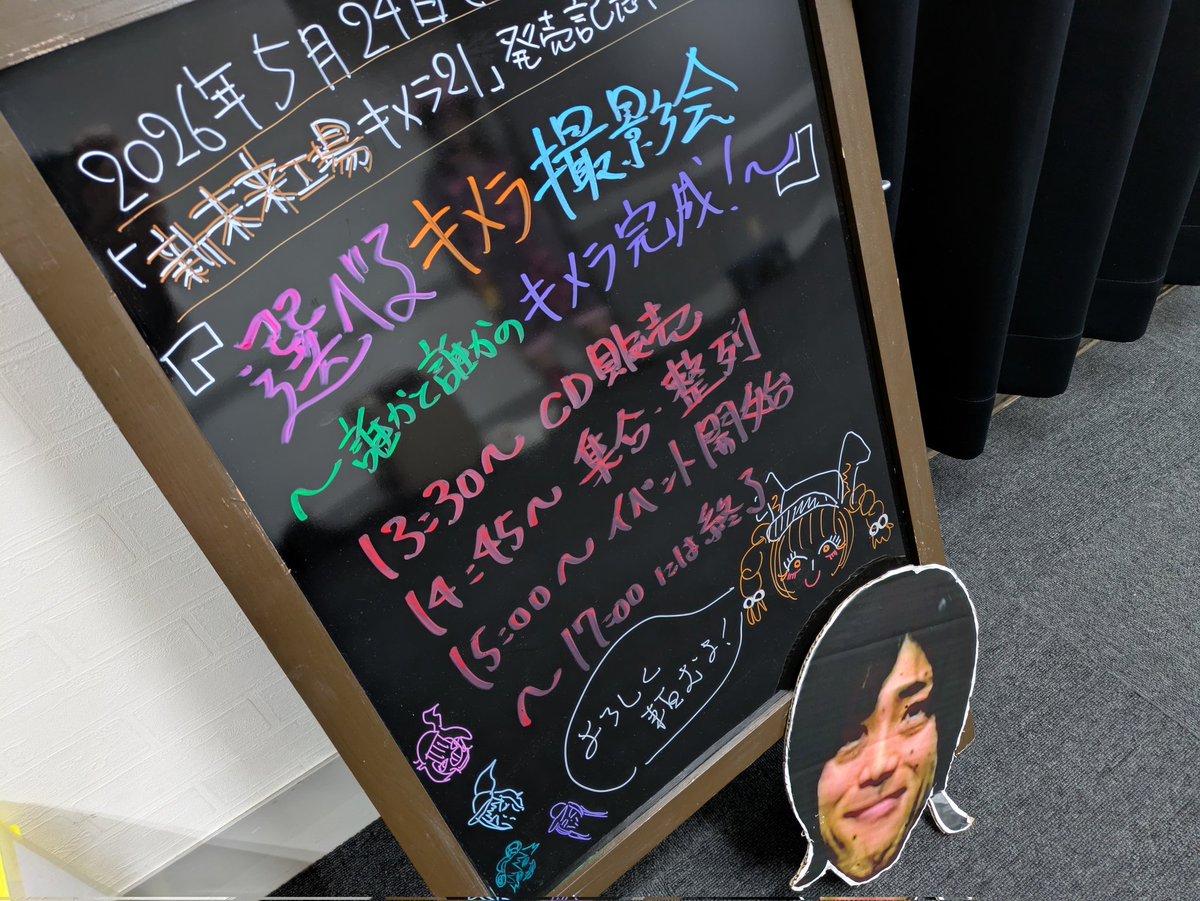 2026年5月24日
「新未来工場キメラ21」発売記念
『選べるキメラ撮影会
～誰かと誰かのキメラ完成！～』
13:30～ CD販売
14:45～ 集合・整列
15:00～ イベント開始
～17:00には終了
よろしく
頼むよ！